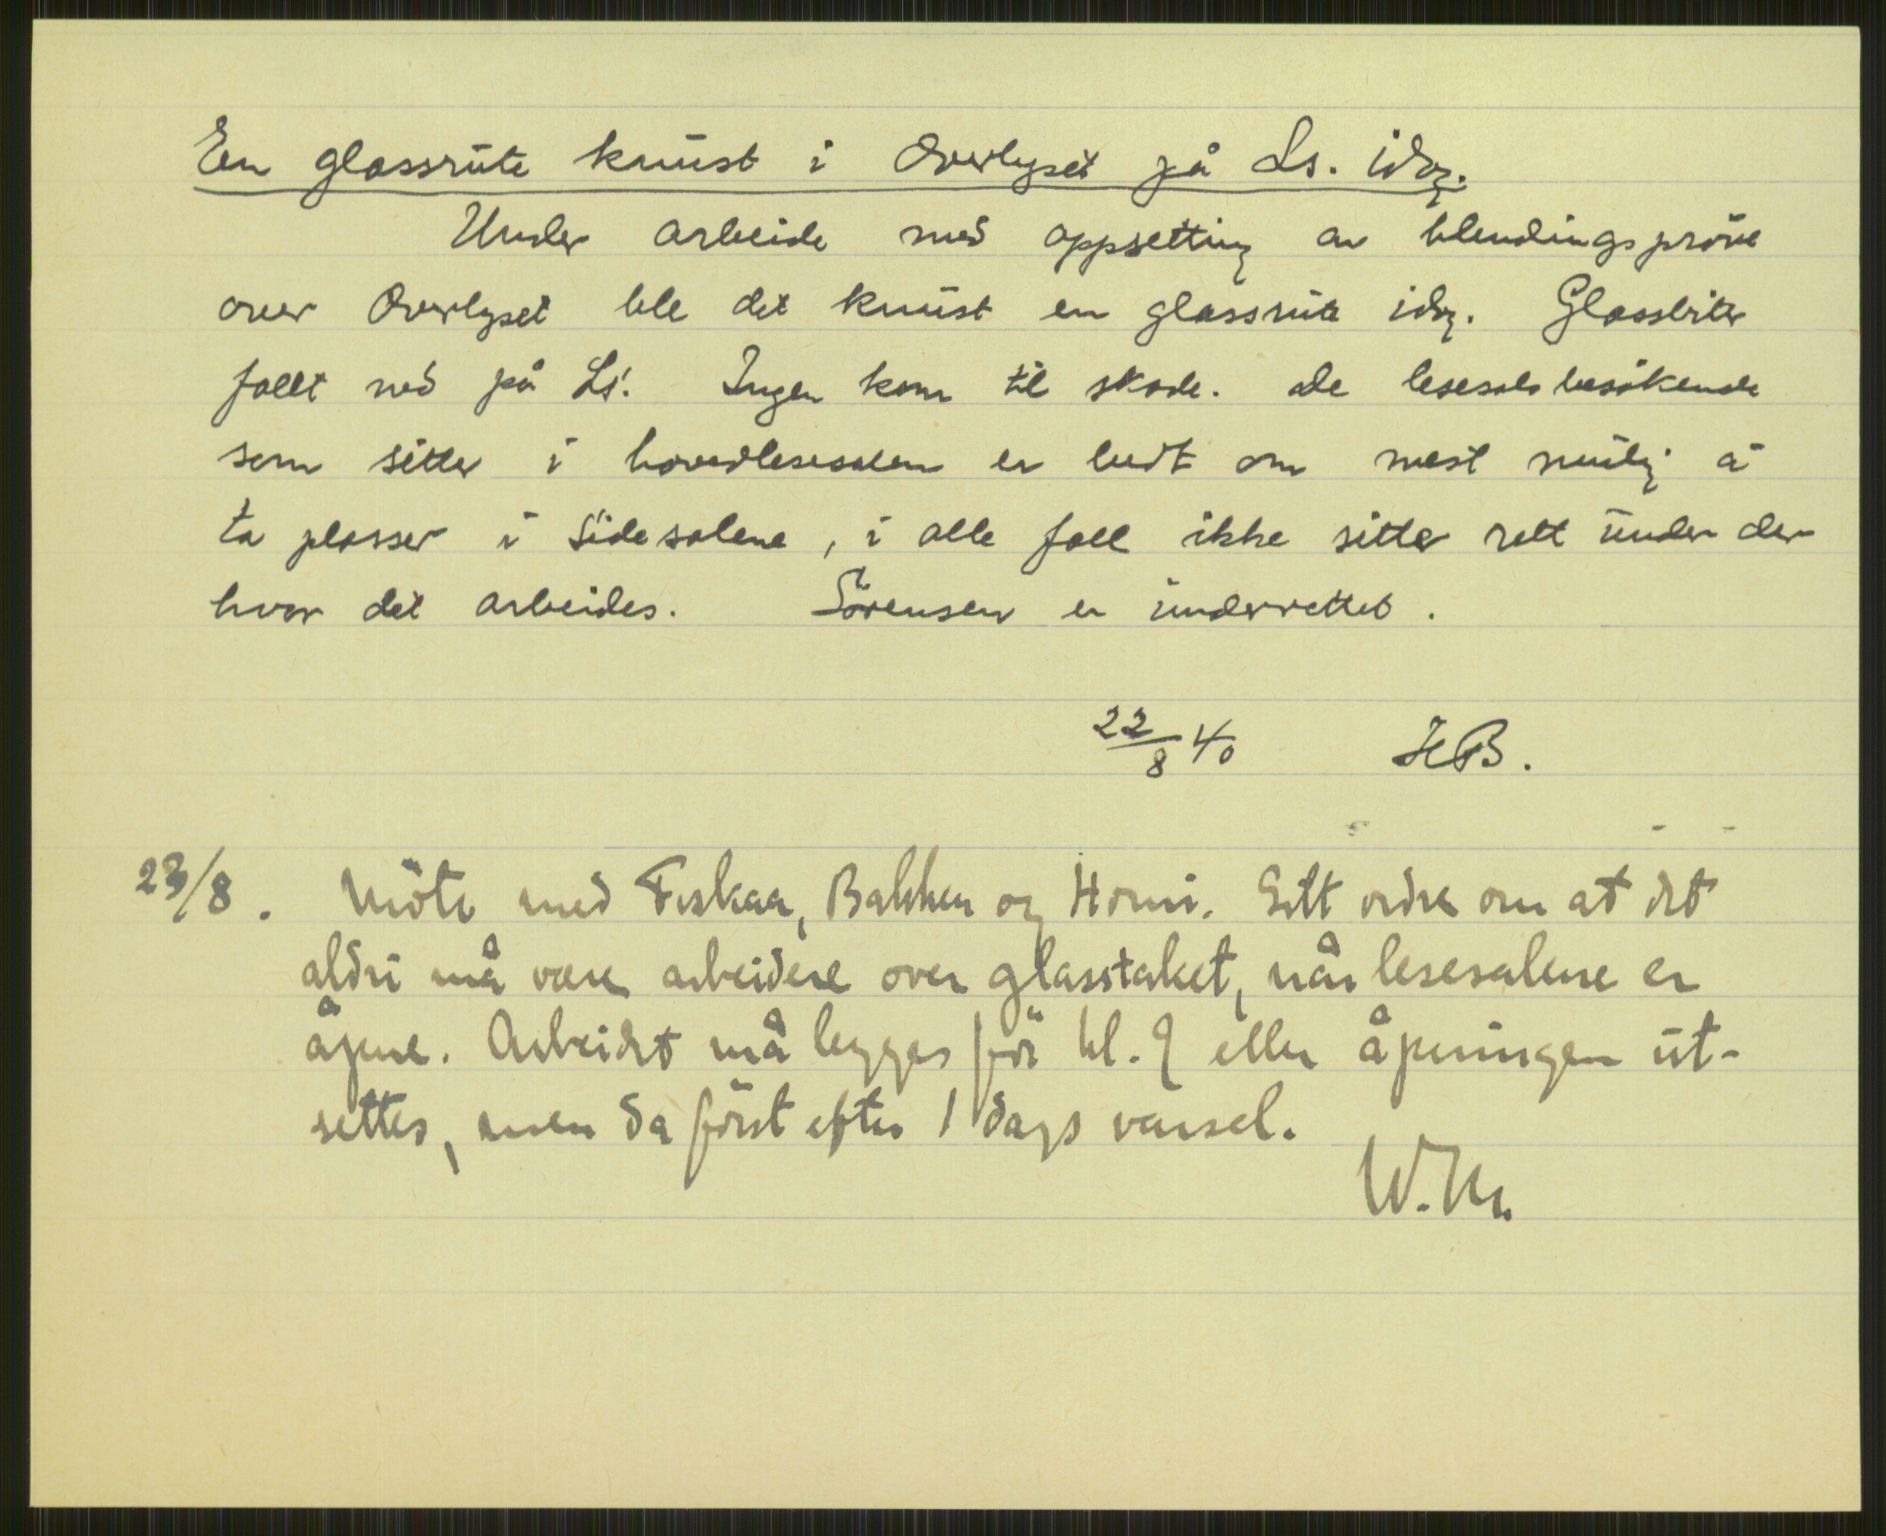 En glassrute knust i Overlyset på Ls. idag.
Under arbeide med oppsetting av blendingspröve
over Overlyset ble det knust en glassrute idag. Glassbiter
fallt ned på Ls. Ingen kom til skade. De lesesals besökende
som sitter i hovedlesesalen er bedt om mest mulig å
ta plasser i Sidesalene, i alle fall ikke sitte rett under der
hvor det arbeides. Sörensen er underrettet.
22/8 40 HB.
23/8. Möte med Fiskaa, Bakken og Horni. Gitt ordre om at det
aldri må være arbeidere over glasstaket, når lesesalene er
åpne. Arbeidet må legges för kl. 9 eller åpningen ut-
settes, men da först efter 1 dags varsel.
W.M.